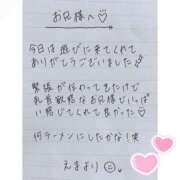 お兄様へ♡
今日は遊びに来てくれて
ありがとうございました！
緊張が伝わってきたけど
乳首敏感なお兄様いっぱい
感じてくれて良かった♡
何ラーメンにしたかな！笑
えまより☺